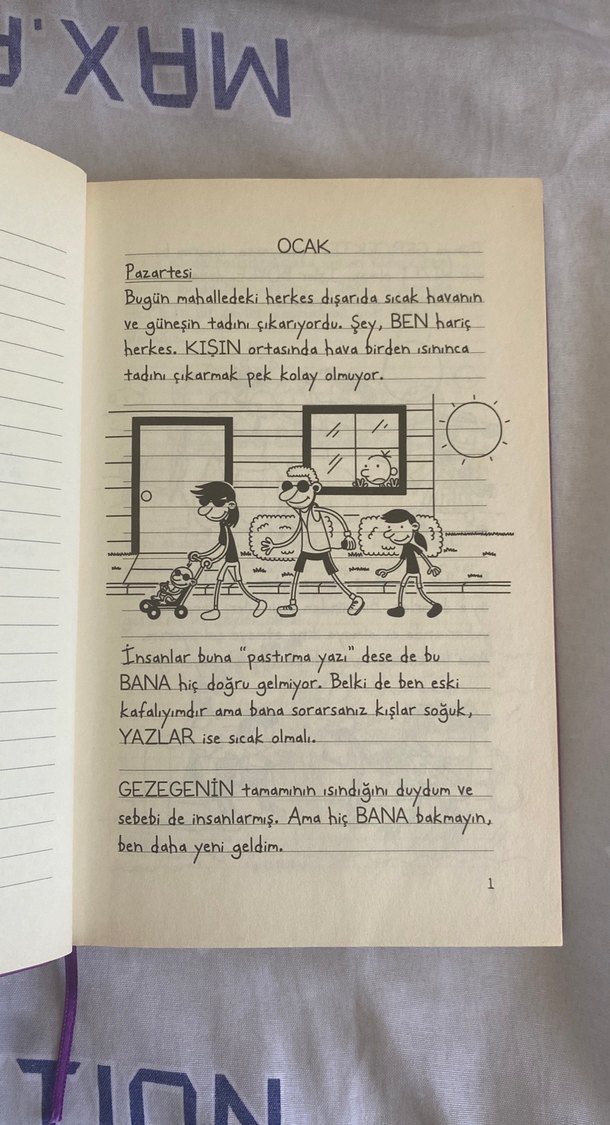 MAX.A
OCAK
Pazartesi
Bugün mahalledeki herkes dışarıda sıcak havanın
ve güneşin tadını çıkarıyordu. Şey, BEN hariç
herkes. KIŞIN ortasında hava birden ısınınca
tadını çıkarmak pek kolay olmuyor.
İnsanlar buna "pastırma yazı" dese de bu
BANA hiç doğru gelmiyor. Belki de ben eski
kafalıyımdır ama bana sorarsanız kışlar soğuk,
YAZLAR ise sıcak olmalı.
GEZEGENİN tamamının ısındığını duydum ve
sebebi de insanlarmış. Ama hiç BANA bakmayın,
ben daha yeni geldim.
1